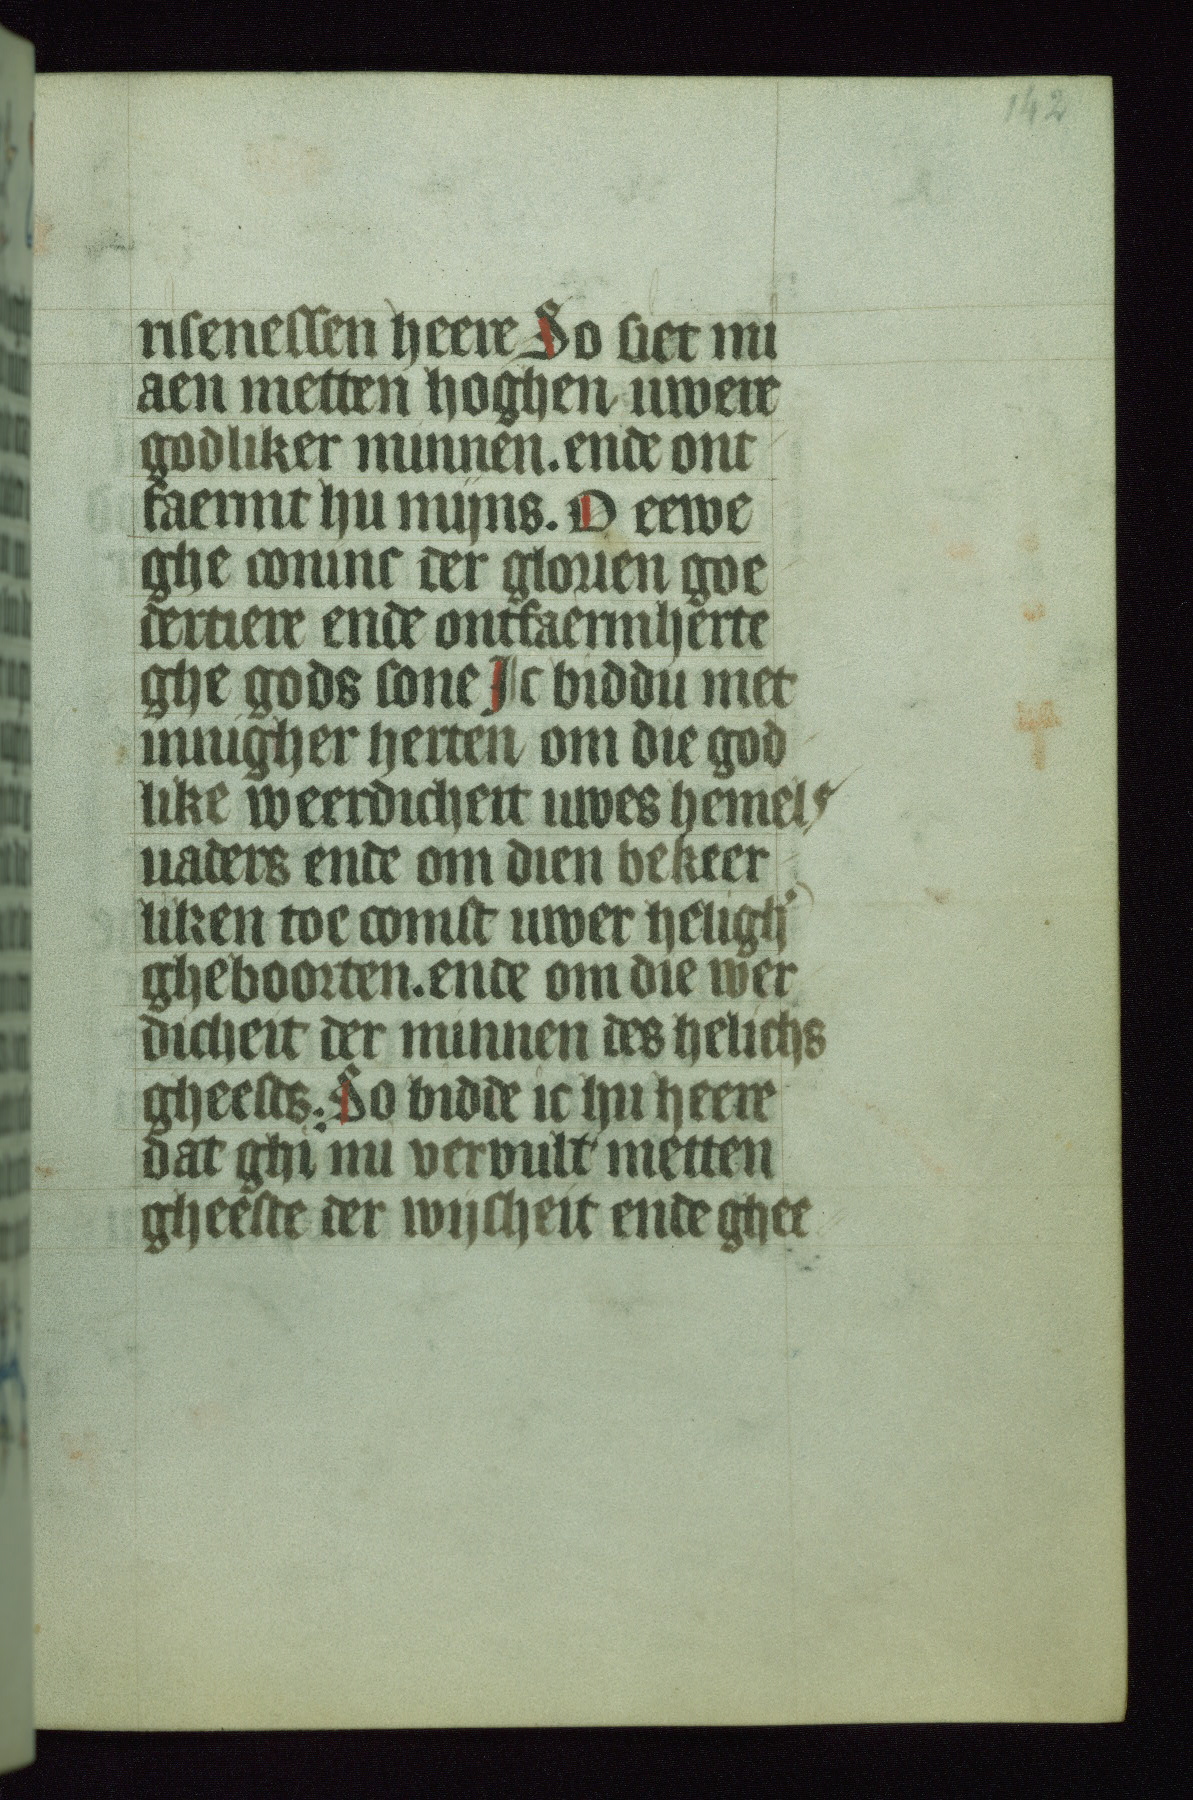 142
risenessen heere So siet mi
aen metten hoghen uwere
godliker minnen. ende ont
faermt hu mijns. O eewe
ghe coninc der glorien goe
dertiere ende ontfaermherte
ghe gods sone Ic biddu met
innigher herten om die god
like weerdicheit uwes hemels
uaders ende om dien bekeer
liken toe comst uwer heligh'
gheboorten. ende om die wer
dicheit der minnen des helichs
gheests. So bidde ic hu heere
dat ghi mi vervult metten
gheeste der wijsheit ende ghee